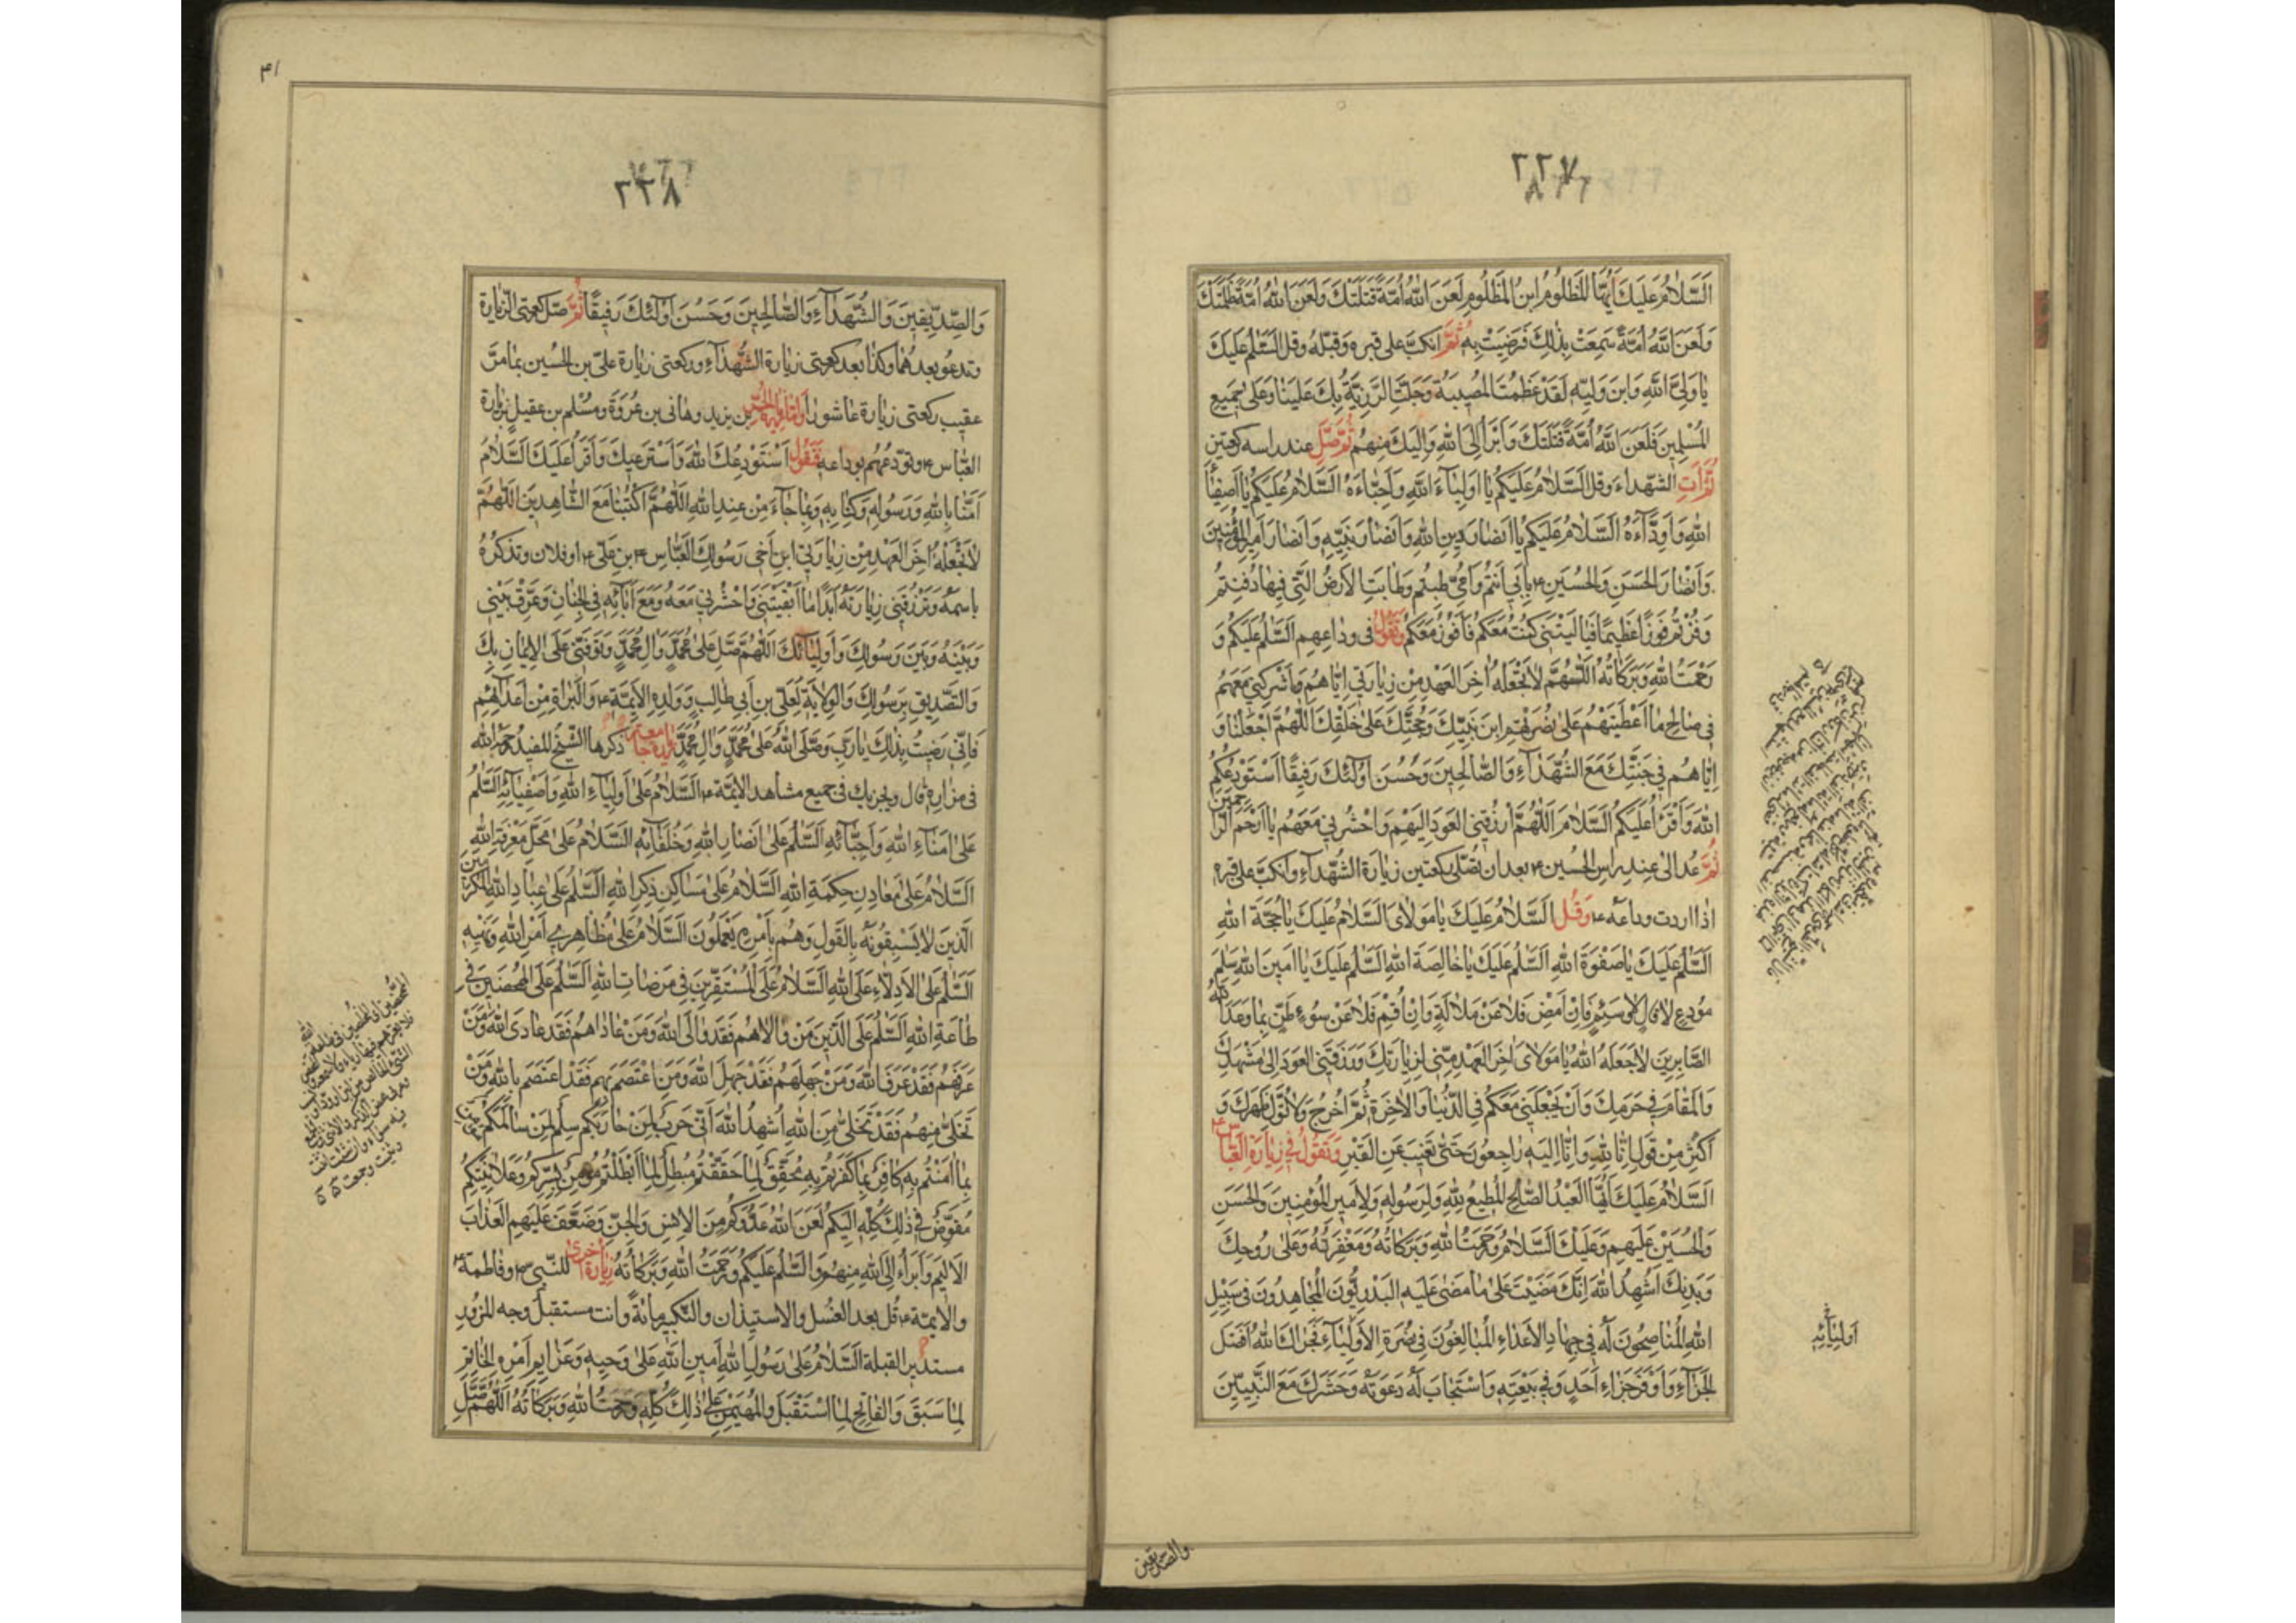 ٢٢٧
السَّلَامُ عَلَيْكَ أَيُّهَا المَظْلُومُ ابْنُ المَظْلُومِ لَعَنَ اللهُ أُمَّةً قَتَلَتْكَ وَلَعَنَ اللهُ أُمَّةً ظَلَمَتْكَ
وَلَعَنَ اللهُ أُمَّةً سَمِعَتْ بِذٰلِكَ فَرَضِيَتْ بِهِ ثُمَّ انكبّ على قبره وقبّله وقل السَّلٰمُ عَلَيْكَ
يٰا وَلِيَّ اللهِ وَابْنَ وَلِيِّهِ لَقَدْ عَظُمَتِ المُصِيبَةُ وَجَلَّتِ الرَّزِيَّةُ بِكَ عَلَيْنٰا وَعَلىٰ جَمِيعِ
المُسْلِمِينَ فَلَعَنَ اللهُ أُمَّةً قَتَلَتْكَ وَأَبْرَأُ إِلَى اللهِ وَإِلَيْكَ مِنْهُمْ ثُمَّ صَلِّ عند راسه ركعتين
ثُمَّ أْتِ الشهداء وقل السَّلَامُ عَلَيْكُمْ يٰا أَوْلِيٰاءَ اللهِ وَأَحِبّٰاءَهُ السَّلَامُ عَلَيْكُمْ يٰا أَصْفِيٰاءَ
اللهِ وَأَوِدّٰاءَهُ السَّلَامُ عَلَيْكُمْ يٰا أَنْصٰارَ دِينِ اللهِ وَأَنْصٰارَ نَبِيِّهِ وَأَنْصٰارَ أَمِيرِ المُؤْمِنِينَ
وَأَنْصٰارَ الحَسَنِ وَالحُسَيْنِ ع بِأَبِي أَنْتُمْ وَأُمِّي طِبْتُمْ وَطٰابَتِ الأَرْضُ الَّتِي فِيهٰا دُفِنْتُمْ
وَفُزْتُمْ فَوْزًا عَظِيمًا فَيٰا لَيْتَنِي كُنْتُ مَعَكُمْ فَأَفُوزَ مَعَكُمْ وَتَقُولُ في وداعهم السَّلٰمُ عَلَيْكُمْ وَ
رَحْمَتُ اللهِ وَبَرَكٰاتُهُ اللّٰهُمَّ لٰا تَجْعَلْهُ آخِرَ العَهْدِ مِنْ زِيٰارَتِي إِيّٰاهُمْ وَأَشْرِكْنِي مَعَهُمْ
فِي صٰالِحِ مٰا أَعْطَيْتَهُمْ عَلىٰ نُصْرَتِهِمْ ابْنَ نَبِيِّكَ وَحُجَّتَكَ عَلىٰ خَلْقِكَ اللّٰهُمَّ اجْعَلْنٰا وَ
إِيّٰاهُمْ فِي جَنَّتِكَ مَعَ الشُّهَدٰاءِ وَالصّٰالِحِينَ وَحَسُنَ أُولٰئِكَ رَفِيقًا أَسْتَوْدِعُكُمُ
اللهَ وَأَقْرَأُ عَلَيْكُمُ السَّلَامَ اللّٰهُمَّ ارْزُقْنِي العَوْدَ إِلَيْهِمْ وَاحْشُرْنِي مَعَهُمْ يٰا أَرْحَمَ الرّٰاحِمِينَ
ثُمَّ عد الى عند راس الحسين ع بعد ان تصلّى ركعتين زيارة الشّهدآء وانكبّ على قبره
اذا اردت وداعه ع وَقُل السَّلَامُ عَلَيْكَ يٰا مَوْلٰايَ السَّلَامُ عَلَيْكَ يٰا حُجَّةَ اللهِ
السَّلٰمُ عَلَيْكَ يٰا صَفْوَةَ اللهِ السَّلٰمُ عَلَيْكَ يٰا خٰالِصَةَ اللهِ السَّلٰمُ عَلَيْكَ يٰا أَمِينَ اللهِ سَلٰامَ
مُوَدِّعٍ لٰا قٰالٍ وَلٰا سَئِمٍ فَإِنْ أَمْضِ فَلٰا عَنْ مَلٰالَةٍ وَإِنْ أُقِمْ فَلٰا عَنْ سُوءِ ظَنٍّ بِمٰا وَعَدَ اللهُ
الصّٰابِرِينَ لٰا جَعَلَهُ اللهُ يٰا مَوْلٰايَ آخِرَ العَهْدِ مِنِّي لِزِيٰارَتِكَ وَرَزَقَنِي العَوْدَ إِلىٰ مَشْهَدِكَ
وَالمُقٰامَ فِي حَرَمِكَ وَأَنْ يَجْعَلَنِي مَعَكُمْ فِي الدُّنْيٰا وَالآخِرَةِ ثُمَّ اخْرُجْ وَلٰا تُوَلِّ ظَهْرَكَ وَ
أَكْثِرْ مِنْ قَوْلِ إِنّٰا لِلّٰهِ وَإِنّٰا إِلَيْهِ رٰاجِعُونَ حَتّىٰ تَغِيبَ عَنِ القَبْرِ وَتَقُولُ فِي زِيٰارَةِ العَبّٰاس ع
السَّلَامُ عَلَيْكَ أَيُّهَا العَبْدُ الصّٰالِحُ المُطِيعُ لِلّٰهِ وَلِرَسُولِهِ وَلِأَمِيرِ المُؤْمِنِينَ وَالحَسَنِ
وَالحُسَيْنِ عَلَيْهِمْ وَعَلَيْكَ السَّلَامُ وَرَحْمَتُ اللهِ وَبَرَكٰاتُهُ وَمَغْفِرَتُهُ وَعَلىٰ رُوحِكَ
وَبَدَنِكَ أُشْهِدُ اللهَ إِنَّكَ مَضَيْتَ عَلىٰ مٰا مَضىٰ عَلَيْهِ البَدْرِيُّونَ المُجٰاهِدُونَ فِي سَبِيلِ
اللهِ المُنٰاصِحُونَ لَهُ فِي جِهٰادِ الأَعْدٰاءِ المُبٰالِغُونَ فِي نُصْرَةِ الأَوْلِيٰاءِ فَجَزٰاكَ اللهُ أَفْضَلَ
الجَزٰاءِ وَأَوْفَرَ جَزٰاءِ أَحَدٍ وَفىٰ بِبَيْعَتِهِ وَاسْتَجٰابَ لَهُ دَعْوَتَهُ وَحَشَرَكَ مَعَ النَّبِيِّينَ
أَوْلِيٰائِهِ
والصّدّيقين
٢٢٨
وَالصِّدِّيقِينَ وَالشُّهَدٰاءِ وَالصّٰالِحِينَ وَحَسُنَ أُولٰئِكَ رَفِيقًا ثُمَّ صلّ ركعتى الزّيارة
وتدعو بعدهما وكذا بعد ركعتى زيارة الشّهدآء وركعتى زيارة علىّ بن الحسين بما مرّ
عقيب ركعتى زيارة عاشورا بن يزيد وهانى بن عُرْوَة ومُسْلم بن عقيل زيارة
العبّاس ع وتودّعهم بوداعه فَتَقُولُ أَسْتَوْدِعُكَ اللهَ وَأَسْتَرْعِيكَ وَأَقْرَأُ عَلَيْكَ السَّلَامُ
آمَنّٰا بِاللهِ وَرَسُولِهِ وَكِتٰابِهِ وَبِمٰا جٰاءَ مِنْ عِنْدِ اللهِ اللّٰهُمَّ اكْتُبْنٰا مَعَ الشّٰاهِدِينَ اللّٰهُمَّ
لٰا تَجْعَلْهُ آخِرَ العَهْدِ مِنْ زِيٰارَتِي ابْنِ أَخِي رَسُولِكَ العَبّٰاس ع بنِ عَلِيٍّ ع او فلان وتذكرهُ
باسمه وَتَرْزُقَنِي زِيٰارَتَهُ أَبَدًا مٰا أَبْقَيْتَنِي وَاحْشُرْنِي مَعَهُ وَمَعَ آبٰائِهِ فِي الجِنٰانِ وَعَرِّفْ بَيْنِي
وَبَيْنَهُ وَبَيْنَ رَسُولِكَ وَأَوْلِيٰائِكَ اللّٰهُمَّ صَلِّ عَلىٰ مُحَمَّدٍ وَآلِ مُحَمَّدٍ وَتَوَفَّنِي عَلَى الإِيمٰانِ بِكَ
وَالتَّصْدِيقِ بِرَسُولِكَ وَالوِلٰايَةِ لِعَلِيِّ بنِ أَبِي طٰالِبٍ وَوُلْدِهِ الأَئِمَّةِ ع وَالبَرٰاءَةِ مِنْ أَعْدٰائِهِمْ
فَإِنِّي رَضِيتُ بِذٰلِكَ يٰا رَبِّ وَصَلَّى اللهُ عَلىٰ مُحَمَّدٍ وَآلِ مُحَمَّدٍ زيارة جامعة ذكرها الشّيخ المفيد رحمه الله
فى مزاره قال ويجزيك فى جميع مشاهد الائمّة ع السَّلَامُ عَلىٰ أَوْلِيٰاءِ اللهِ وَأَصْفِيٰائِهِ السَّلٰمُ
عَلىٰ أُمَنٰاءِ اللهِ وَأَحِبّٰائِهِ السَّلٰمُ عَلىٰ أَنْصٰارِ اللهِ وَخُلَفٰائِهِ السَّلَامُ عَلىٰ مَحٰلِّ مَعْرِفَةِ اللهِ
السَّلَامُ عَلىٰ مَعٰادِنِ حِكْمَةِ اللهِ السَّلَامُ عَلىٰ مَسٰاكِنِ ذِكْرِ اللهِ السَّلٰمُ عَلىٰ عِبٰادِ اللهِ المُكْرَمِينَ
الَّذِينَ لٰا يَسْبِقُونَهُ بِالقَوْلِ وَهُمْ بِأَمْرِهِ يَعْمَلُونَ السَّلَامُ عَلىٰ مُظٰاهِرِي أَمْرِ اللهِ وَنَهْيِهِ
السَّلٰمُ عَلَى الأَدِلّٰاءِ عَلَى اللهِ السَّلَامُ عَلَى المُسْتَقِرِّينَ فِي مَرْضٰاتِ اللهِ السَّلٰمُ عَلَى المُمَحَّصِينَ فِي
طٰاعَةِ اللهِ السَّلٰمُ عَلَى الَّذِينَ مَنْ وٰالٰاهُمْ فَقَدْ وٰالَى اللهَ وَمَنْ عٰادٰاهُمْ فَقَدْ عٰادَى اللهَ وَمَنْ
عَرَفَهُمْ فَقَدْ عَرَفَ اللهَ وَمَنْ جَهِلَهُمْ فَقَدْ جَهِلَ اللهَ وَمَنِ اعْتَصَمَ بِهِمْ فَقَدِ اعْتَصَمَ بِاللهِ وَمَنْ
تَخَلّىٰ مِنْهُمْ فَقَدْ تَخَلّىٰ مِنَ اللهِ أُشْهِدُ اللهَ أَنِّي حَرْبٌ لِمَنْ حٰارَبَكُمْ سِلْمٌ لِمَنْ سٰالَمَكُمْ مُؤْمِنٌ
بِمٰا آمَنْتُمْ بِهِ كٰافِرٌ بِمٰا كَفَرْتُمْ بِهِ مُحَقِّقٌ لِمٰا حَقَّقْتُمْ مُبْطِلٌ لِمٰا أَبْطَلْتُمْ مُؤْمِنٌ بِسِرِّكُمْ وَعَلٰانِيَتِكُمْ
مُفَوِّضٌ فِي ذٰلِكَ كُلِّهِ إِلَيْكُمْ لَعَنَ اللهُ عَدُوَّكُمْ مِنَ الإِنْسِ وَالجِنِّ وَضَعَّفَ عَلَيْهِمُ العَذٰابَ
الأَلِيمَ وَأَبْرَأُ إِلَى اللهِ مِنْهُمْ وَالسَّلٰمُ عَلَيْكُمْ وَرَحْمَتُ اللهِ وَبَرَكٰاتُهُ زيارة اخرى للنّبى ص وفاطمة ع
والائمّة ع قُل بعد الغُسل والاستيذان والتّكبير مائةً وانت مستقبل وجه المزُور
مستدبر القبلة السَّلَامُ عَلىٰ رَسُولِ اللهِ أَمِينِ اللهِ عَلىٰ وَحْيِهِ وَعَزٰائِمِ أَمْرِهِ الخٰاتِمِ
لِمٰا سَبَقَ وَالفٰاتِحِ لِمَا اسْتَقْبَلَ وَالمُهَيْمِنِ عَلىٰ ذٰلِكَ كُلِّهِ وَرَحْمَتُ اللهِ وَبَرَكٰاتُهُ اللّٰهُمَّ صَلِّ